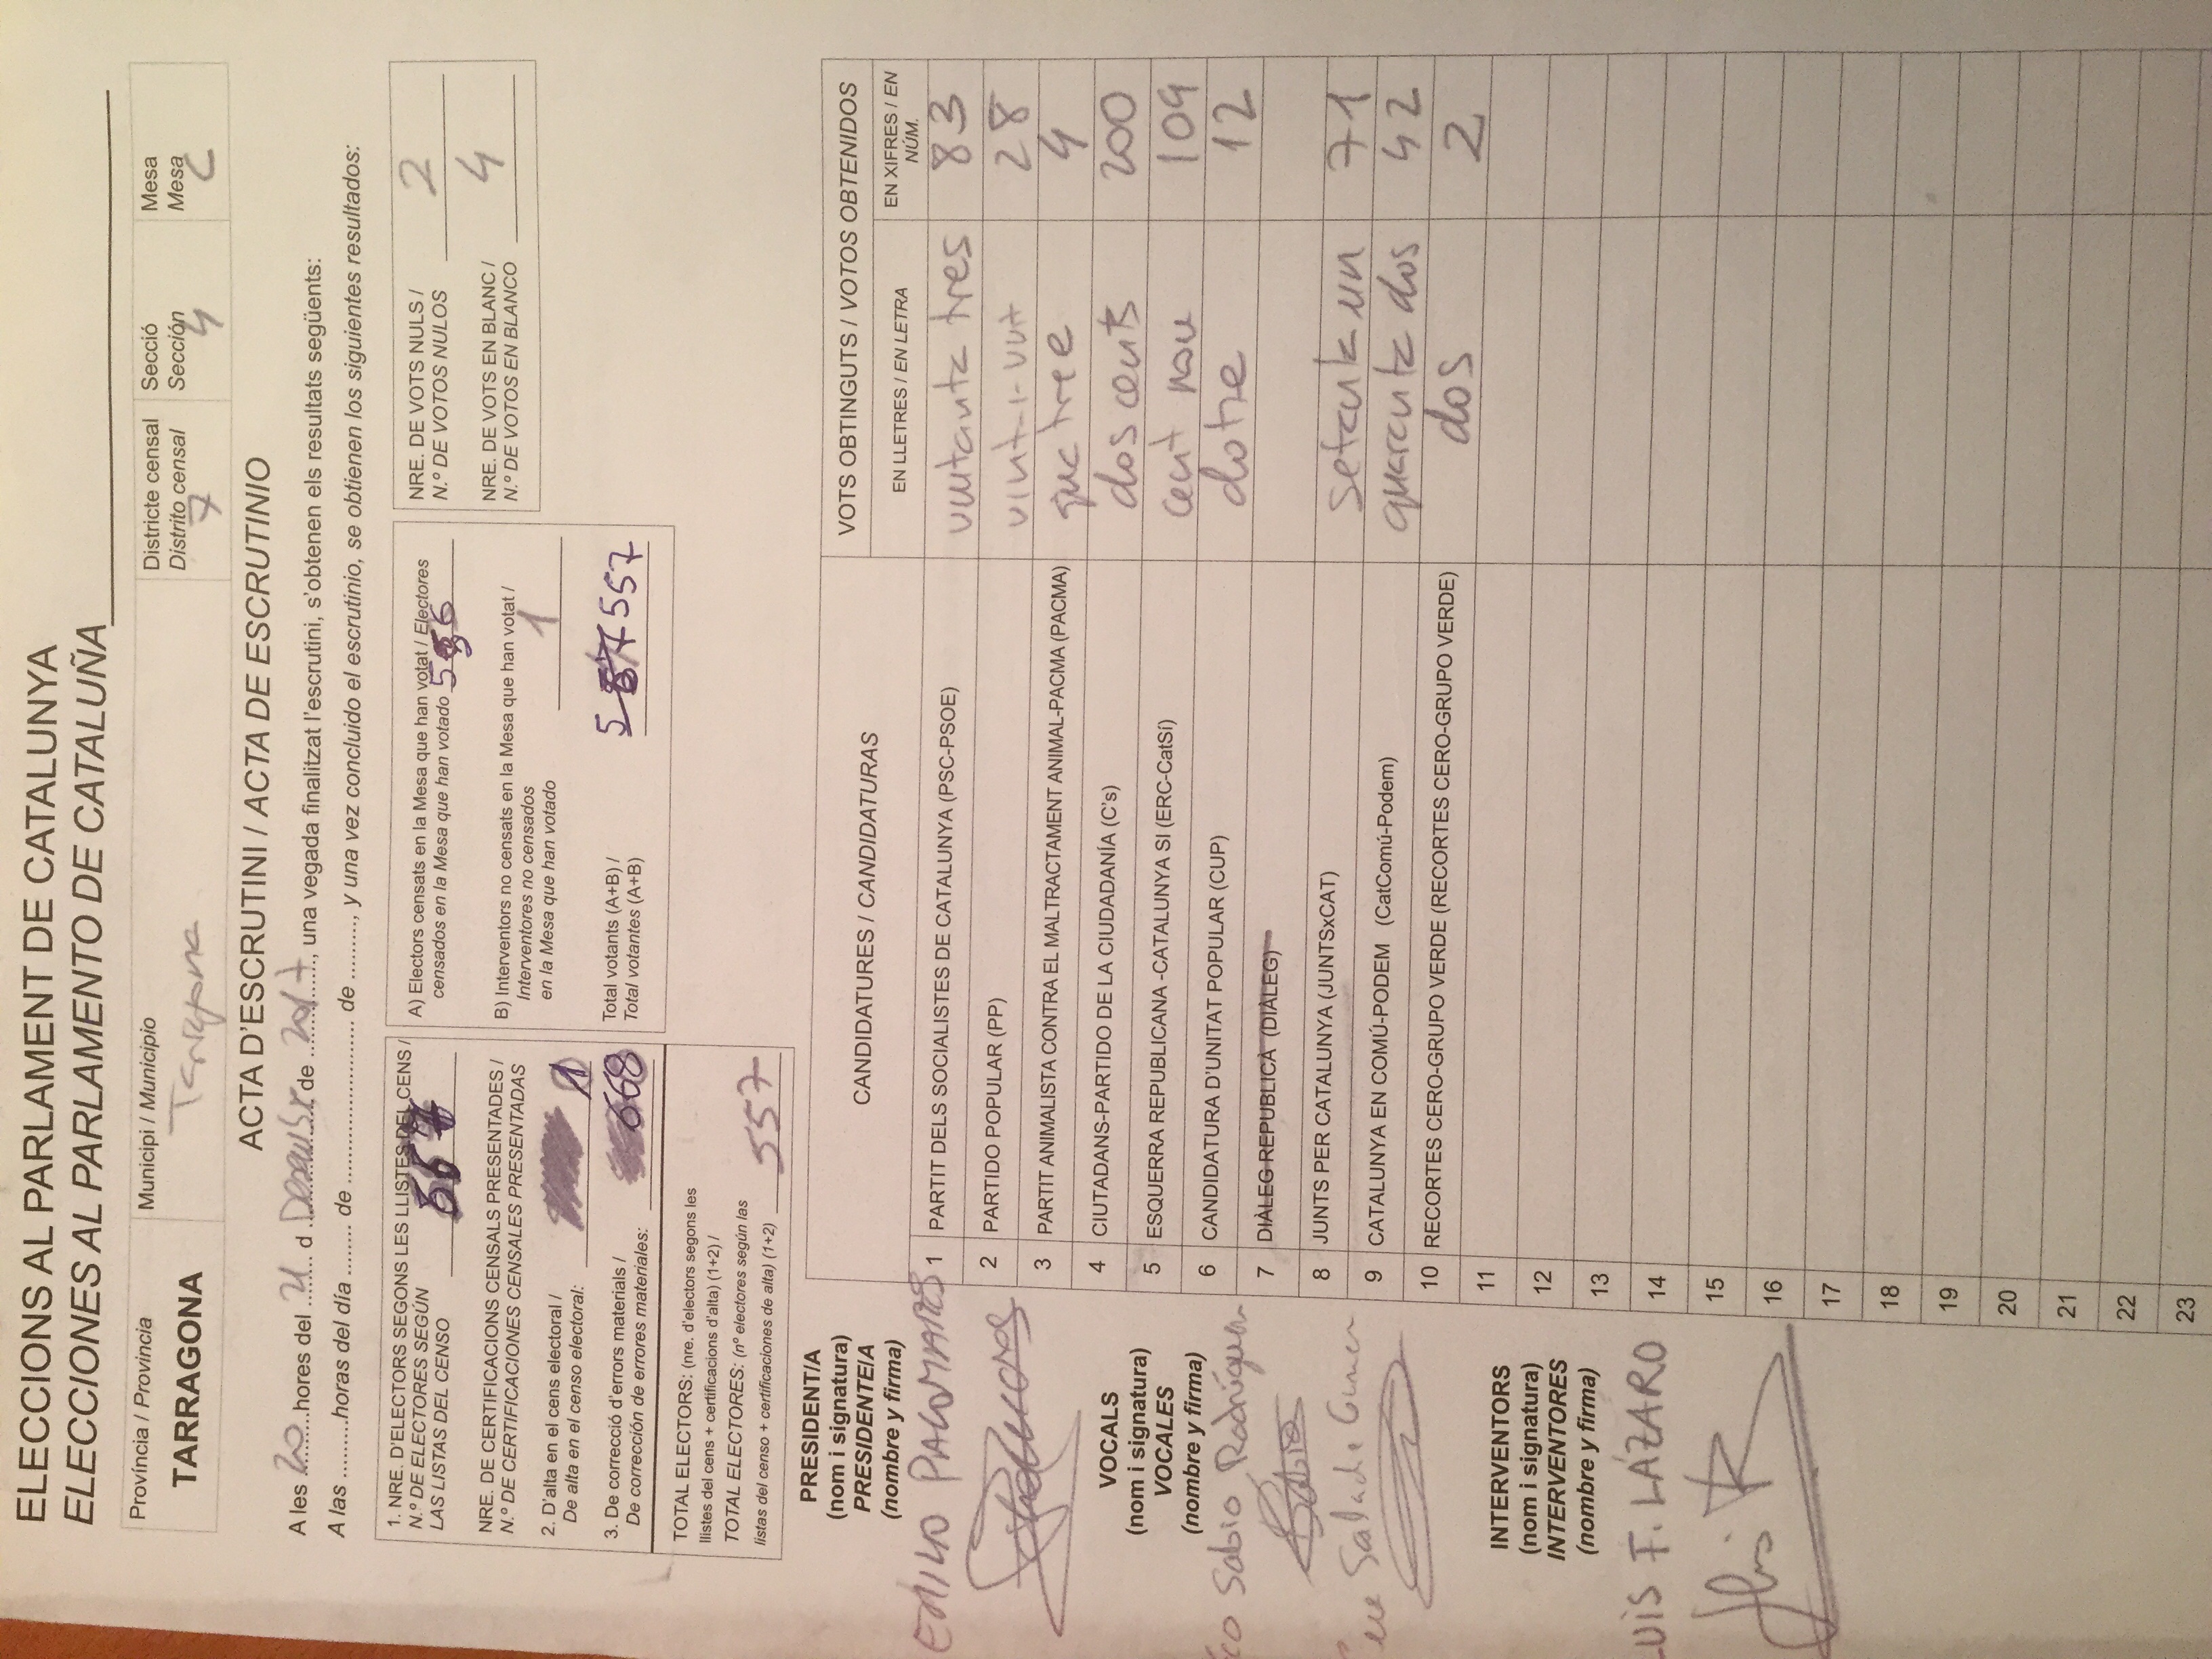 ELECCIONS AL PARLAMENT DE CATALUNYA
ELECCIONES AL PARLAMENTO DE CATALUÑA
Província / Provincia
TARRAGONA
Municipi / Municipio
Tarragona
Districte censal
Distrito censal
7
Secció
Sección
4
Mesa
Mesa
C
ACTA D'ESCRUTINI / ACTA DE ESCRUTINIO
A les 20 hores del 21 d Desembre de 2017, una vegada finalitzat l'escrutini, s'obtenen els resultats següents:
A las .........horas del día ........ de .......................... de ........., y una vez concluido el escrutinio, se obtienen los siguientes resultados:
1. NRE. D'ELECTORS SEGONS LES LLISTES DEL CENS /
N.º DE ELECTORES SEGÚN
LAS LISTAS DEL CENSO
NRE. DE CERTIFICACIONS CENSALS PRESENTADES /
N.º DE CERTIFICACIONES CENSALES PRESENTADAS
2. D'alta en el cens electoral /
De alta en el censo electoral: 1
3. De correcció d'errors materials /
De corrección de errores materiales: 668
TOTAL ELECTORS: (nre. d'electors segons les
llistes del cens + certificacions d'alta) (1+2) /
TOTAL ELECTORES: (nº electores según las
listas del censo + certificaciones de alta) (1+2) 557
A) Electors censats en la Mesa que han votat / Electores
censados en la Mesa que han votado 556
B) Interventors no censats en la Mesa que han votat /
Interventores no censados
en la Mesa que han votado 1
Total votants (A+B) /
Total votantes (A+B) 557
NRE. DE VOTS NULS /
N.º DE VOTOS NULOS 2
NRE. DE VOTS EN BLANC /
N.º DE VOTOS EN BLANCO 4
PRESIDENT/A
(nom i signatura)
PRESIDENTE/A
(nombre y firma)
EMILIO PALOMARES
VOCALS
(nom i signatura)
VOCALES
(nombre y firma)
Sabio Rodríguez
Sabio
INTERVENTORS
(nom i signatura)
INTERVENTORES
(nombre y firma)
LUIS F. LÁZARO
CANDIDATURES / CANDIDATURAS
VOTS OBTINGUTS / VOTOS OBTENIDOS
EN LLETRES / EN LETRA
EN XIFRES / EN
NÚM.
1 PARTIT DELS SOCIALISTES DE CATALUNYA (PSC-PSOE) vuitanta tres 83
2 PARTIDO POPULAR (PP) vint-i-vuit 28
3 PARTIT ANIMALISTA CONTRA EL MALTRACTAMENT ANIMAL-PACMA (PACMA) quatree 4
4 CIUTADANS-PARTIDO DE LA CIUDADANÍA (C's) dos cents 200
5 ESQUERRA REPUBLICANA -CATALUNYA SI (ERC-CatSí) cent nou 109
6 CANDIDATURA D'UNITAT POPULAR (CUP) dotze 12
7 DIÀLEG REPUBLICÀ (DIÀLEG)
8 JUNTS PER CATALUNYA (JUNTSxCAT) setanta un 71
9 CATALUNYA EN COMÚ-PODEM (CatComú-Podem) quaranta dos 42
10 RECORTES CERO-GRUPO VERDE (RECORTES CERO-GRUPO VERDE) dos 2
11
12
13
14
15
16
17
18
19
20
21
22
23